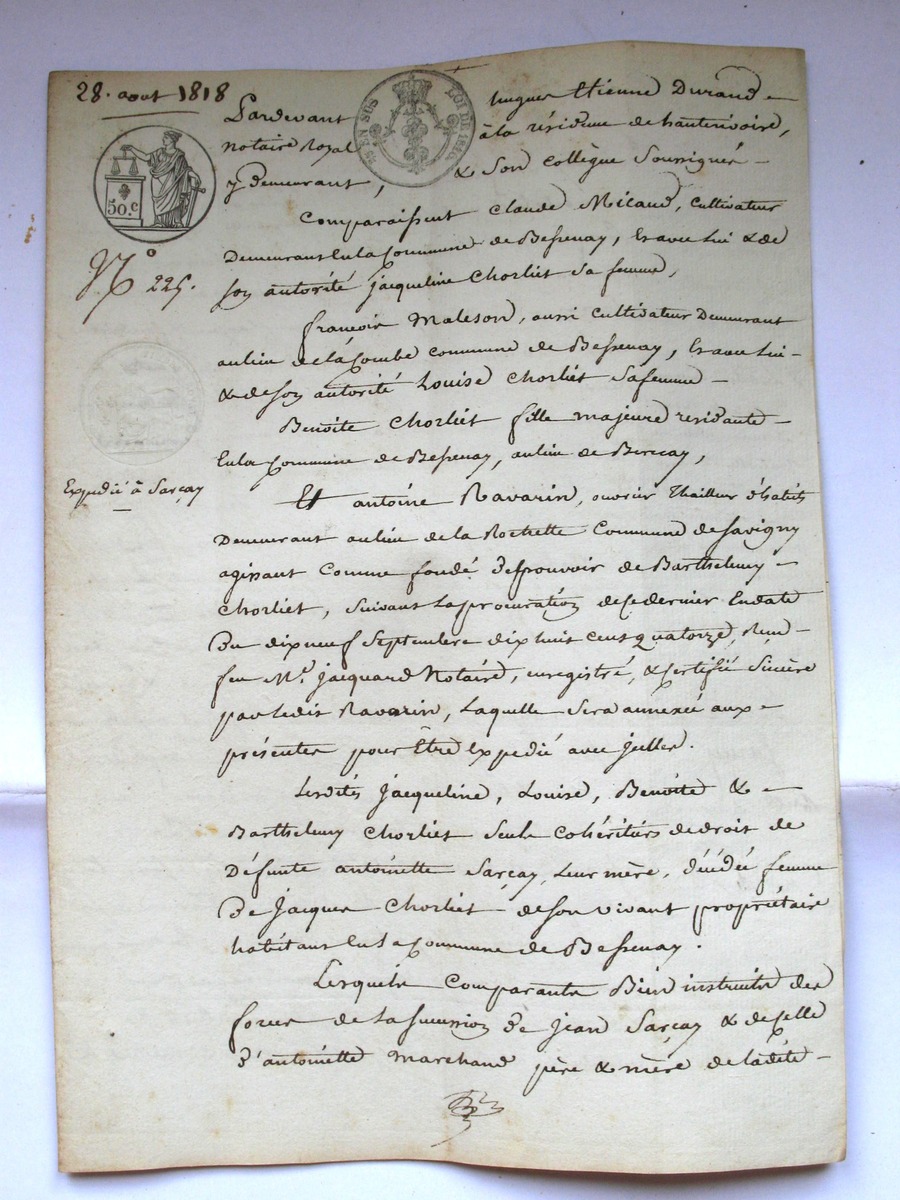 28. aout 1818
Pardevant hugues Etienne Durand
notaire Royal à la résidence de hauterivoire,
y demeurant, & son collègue soussignés
50.c
EN SUS LOI DE
N° 225.
Comparaissent Claude Micaud, cultivateur
Demeurant en la Commune de Bessenay, & avec lui & de
son autorité jacqueline Chorliet sa femme,
françois Maleson, aussi cultivateur Demeurant
au lieu de la Combe commune de Bessenay, & avec lui
& de son autorité Louise Chorliet sa femme
Benoite Chorliet fille majeure residante
En la Commune de Bessenay, au lieu de
Expedié à Sarçay
Et antoine Ravarin, ouvrier Thailleur d'habits
Demeurant au lieu de la Rochette Commune de Savigny
agissant Comme fondé de pouvoir de Barthelemy
Chorliet, suivant la procuration de ce dernier En date
du dix neuf Septembre dix huit cent quatorze,
feu Me. jacquard Notaire, enregistré, & Certifié Sincère
par ledit Ravarin, Laquelle Sera annexée aux
présentes pour Être Expedié avec jcelles.
Lesdits jacqueline, Louise, Benoite &
Barthelemy Chorliet seuls Cohéritiers de droit de
Défunte antoinette Sarçay, leur mère, décédée femme
De jacques Chorliet de son vivant propriétaire
habitant En la Commune de Bessenay.
Lesquels Comparants Bien instruits des
forces de la succession de jean Sarçay & de Celle
d'antoinette Marchand père & mère de ladite